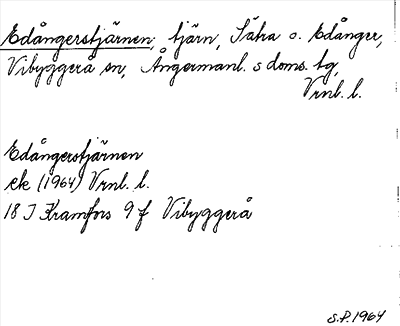 Edångerstjärnen, tjärn, Sätra o. Edånger,
Vibyggerå sn, Ångermanl. s doms. tg,
Vrnl. l.
Edångerstjärnen
ek (1964) Vrnl. l.
18 I Kramfors 9 f Vibyggerå
S.P. 1964